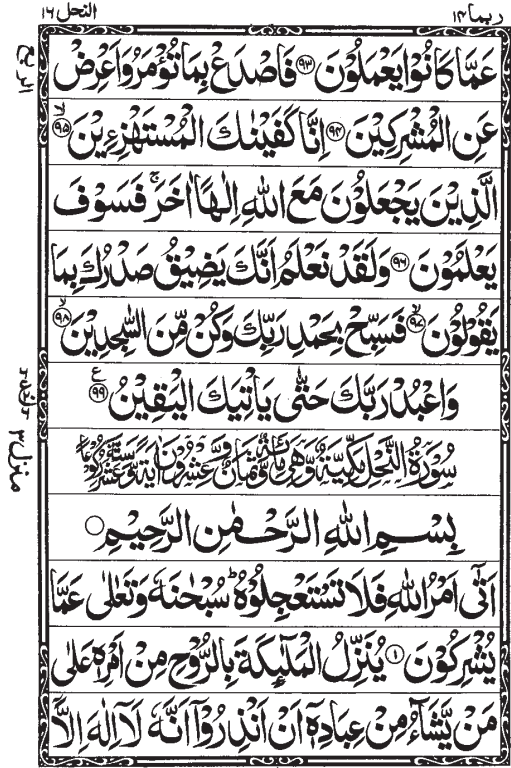 ربما ١٤
النحل ١٦
عَمَّا كَانُوْا يَعْمَلُوْنَ ﴿٩٣﴾ فَاصْدَعْ بِمَا تُؤْمَرُ وَاَعْرِضْ
عَنِ الْمُشْرِكِيْنَ ﴿٩٤﴾ اِنَّا كَفَيْنٰكَ الْمُسْتَهْزِءِيْنَ ﴿٩٥﴾ ۙ
الَّذِيْنَ يَجْعَلُوْنَ مَعَ اللّٰهِ اِلٰهًا اٰخَرَ ۚ فَسَوْفَ
يَعْلَمُوْنَ ﴿٩٦﴾ وَلَقَدْ نَعْلَمُ اَنَّكَ يَضِيْقُ صَدْرُكَ بِمَا
يَقُوْلُوْنَ ﴿٩٧﴾ ۙ فَسَبِّحْ بِحَمْدِ رَبِّكَ وَكُنْ مِّنَ السّٰجِدِيْنَ ﴿٩٨﴾ ۙ
وَاعْبُدْ رَبَّكَ حَتّٰى يَاْتِيَكَ الْيَقِيْنُ ﴿٩٩﴾ ع
سُوْرَةُ النَّحْلِ مَكِّيَّةٌ وَّهِيَ مِائَةٌ وَّثَمَانٌ وَّعِشْرُوْنَ اٰيَةً وَّسِتَّةَ عَشَرَ رُكُوْعًا
بِسْمِ اللّٰهِ الرَّحْمٰنِ الرَّحِيْمِ ○
اَتٰٓى اَمْرُ اللّٰهِ فَلَا تَسْتَعْجِلُوْهُ ؕ سُبْحٰنَهٗ وَتَعٰلٰى عَمَّا
يُشْرِكُوْنَ ﴿١﴾ يُنَزِّلُ الْمَلٰٓئِكَةَ بِالرُّوْحِ مِنْ اَمْرِهٖ عَلٰى
مَنْ يَّشَآءُ مِنْ عِبَادِهٖٓ اَنْ اَنْذِرُوْٓا اَنَّهٗ لَآ اِلٰهَ اِلَّآ
الربع
منزل ٣